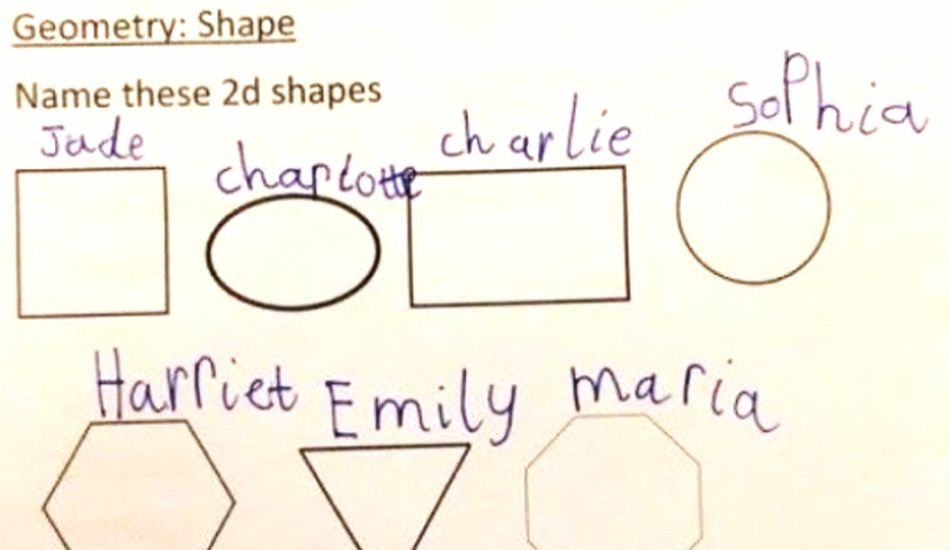 Geometry: Shape
Name these 2d shapes
Jade charlotte charlie Sophia
Harriet Emily maria